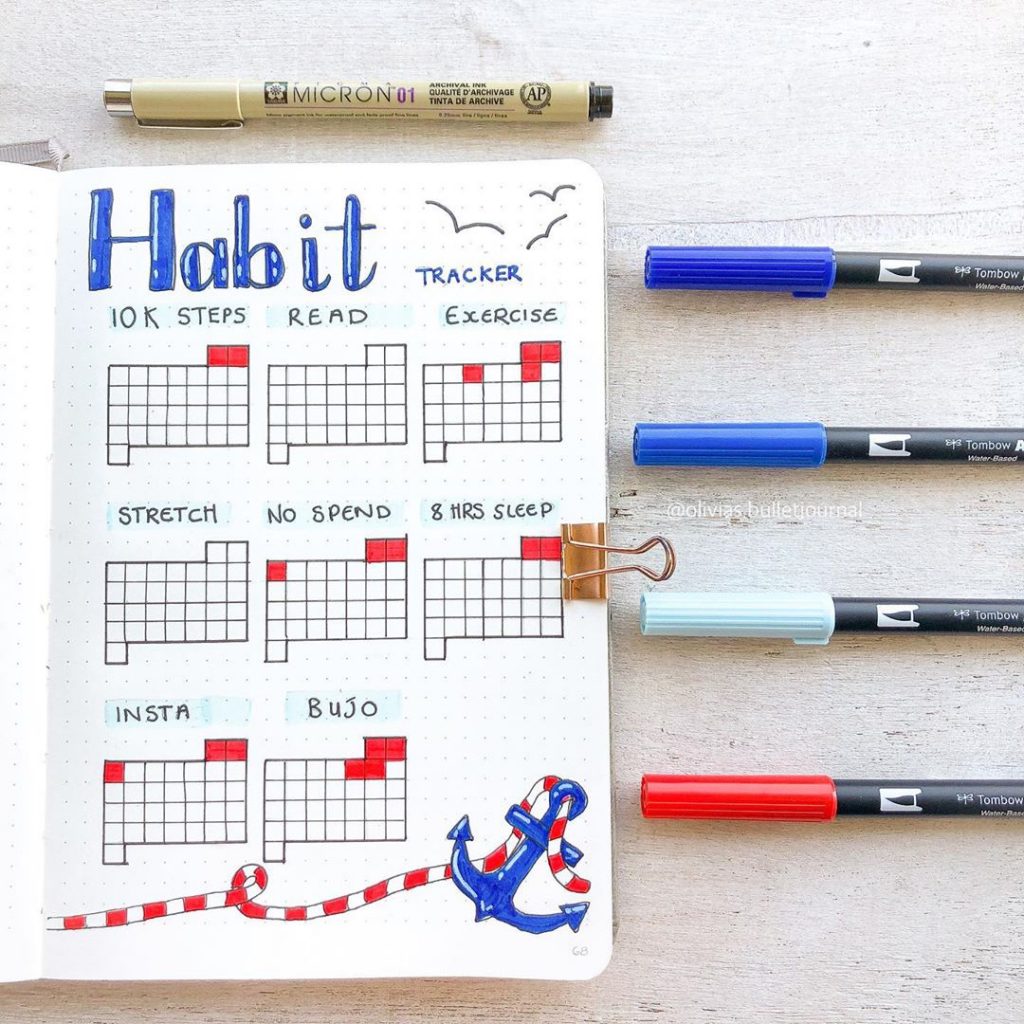 PIGMA
MICRON 01
ARCHIVAL INK
QUALITÉ D'ARCHIVAGE
TINTA DE ARCHIVE
AP
Habit
TRACKER
10K STEPS
READ
EXERCISE
STRETCH
NO SPEND
8 HRS SLEEP
INSTA
BUJO
68
Tombow
Water-Based
Tombow A
Water-Based
@olivias.bulletjournal
Tombow
Water-Based
Tombow
Water-Based